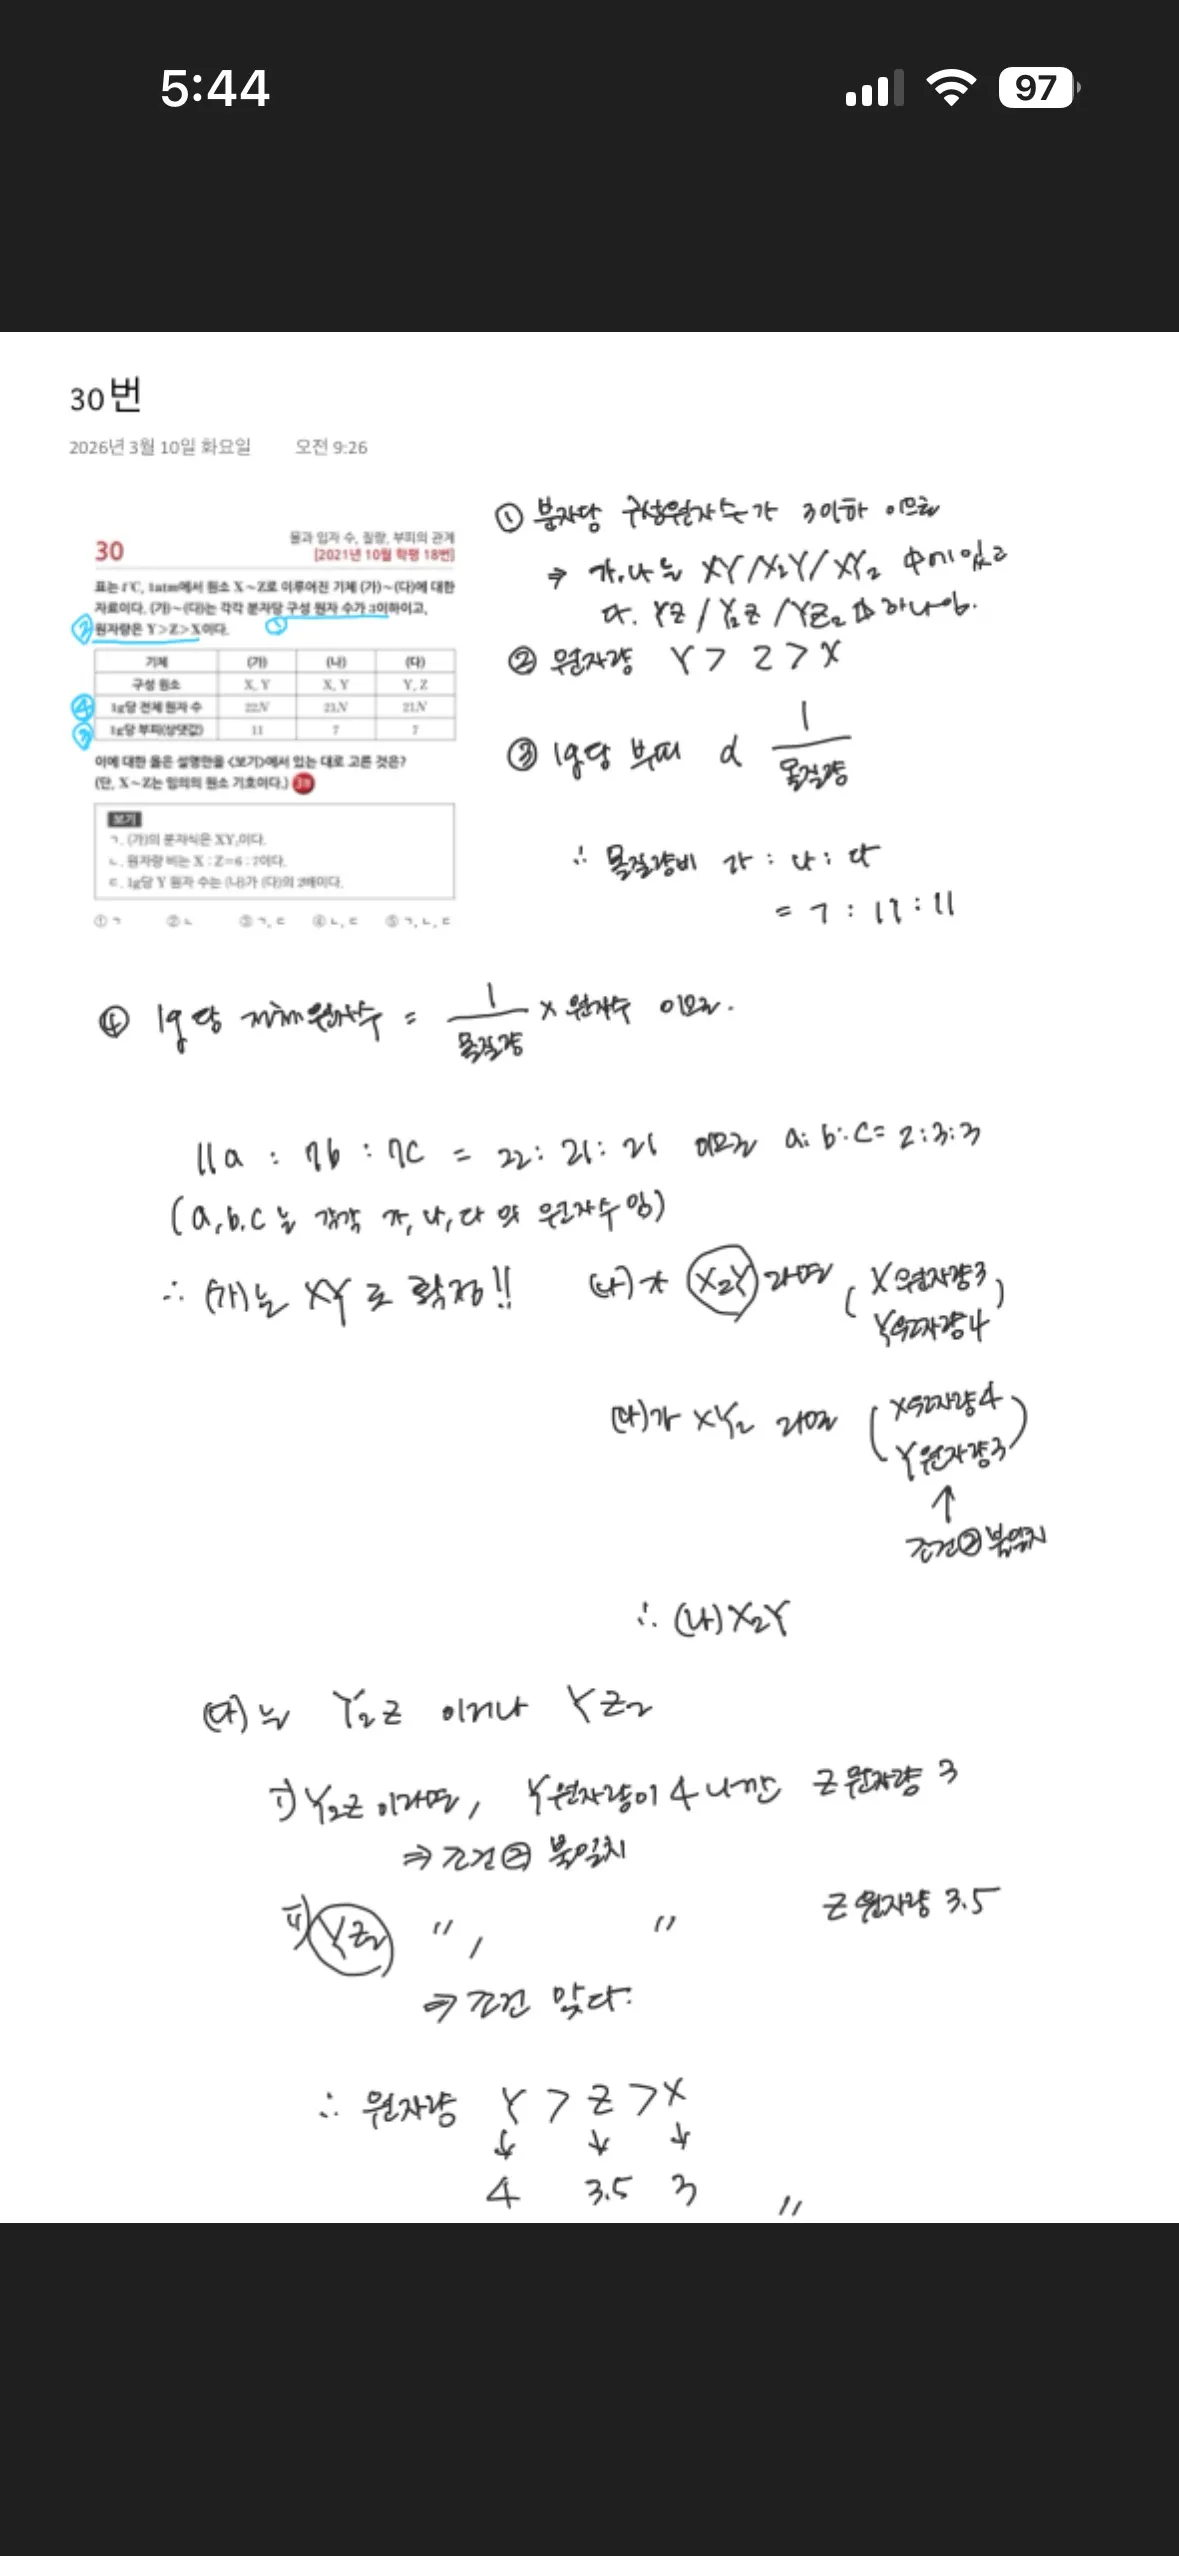 5:44
97
30번
2026년 3월 10일 화요일 오전 9:26
30
물과 입자 수, 질량, 부피의 관계
[2021년 10월 학평 18번]
표는 t℃, 1atm에서 원소 X~Z로 이루어진 기체 (가)~(다)에 대한
자료이다. (가)~(다)는 각각 분자당 구성 원자 수가 3이하이고,
원자량은 Y>Z>X이다.
① ② ④ ③
기체 (가) (나) (다)
구성 원소 X, Y X, Y Y, Z
1g당 전체 원자 수 22N 21N 21N
1g당 부피(상댓값) 11 7 7
이에 대한 옳은 설명만을 <보기>에서 있는 대로 고른 것은?
(단, X~Z는 임의의 원소 기호이다.) 3점
보기
ㄱ. (가)의 분자식은 XY₂이다.
ㄴ. 원자량 비는 X : Z=6 : 7이다.
ㄷ. 1g당 Y 원자 수는 (나)가 (다)의 2배이다.
① ㄱ ② ㄴ ③ ㄱ, ㄷ ④ ㄴ, ㄷ ⑤ ㄱ, ㄴ, ㄷ
① 분자당 구성원자수가 3이하 이므로
⇒ 가,나는 XY/X₂Y/XY₂ 中에 있고
다. YZ / Y₂Z / YZ₂ 中 하나임.
② 원자량 Y > Z > X
③ 1g당 부피 α 1/몰질량
∴ 몰질량비 가 : 나 : 다
= 7 : 11 : 11
④ 1g당 전체원자수 = 1/몰질량 × 원자수 이므로.
11a : 7b : 7c = 22 : 21 : 21 이므로 a:b:c = 2:3:3
(a,b,c는 각각 가, 나, 다의 원자수임)
∴ (가)는 XY로 확정!! (나)가 X₂Y 라면 (X원자량3
Y원자량4)
(나)가 XY₂ 라면 (X원자량4
Y원자량3)
↑
조건② 불일치
∴ (나) X₂Y
(다)는 Y₂Z 이거나 YZ₂
i) Y₂Z 이라면, Y원자량이 4니깐 Z원자량 3
⇒ 조건② 불일치
ii) YZ₂ 〃, 〃 Z원자량 3.5
⇒ 조건 맞다.
∴ 원자량 Y > Z > X
↓ ↓ ↓
4 3.5 3 〃